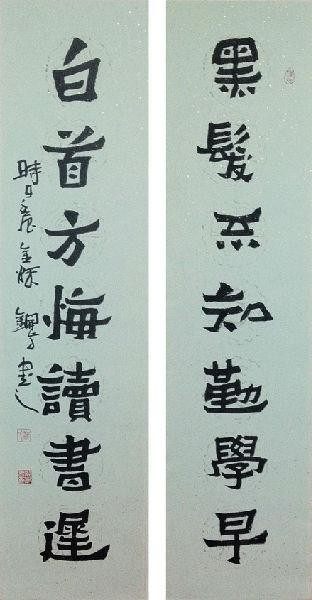 黑髮不知勤學早
白首方悔讀書遲
時金秋書之